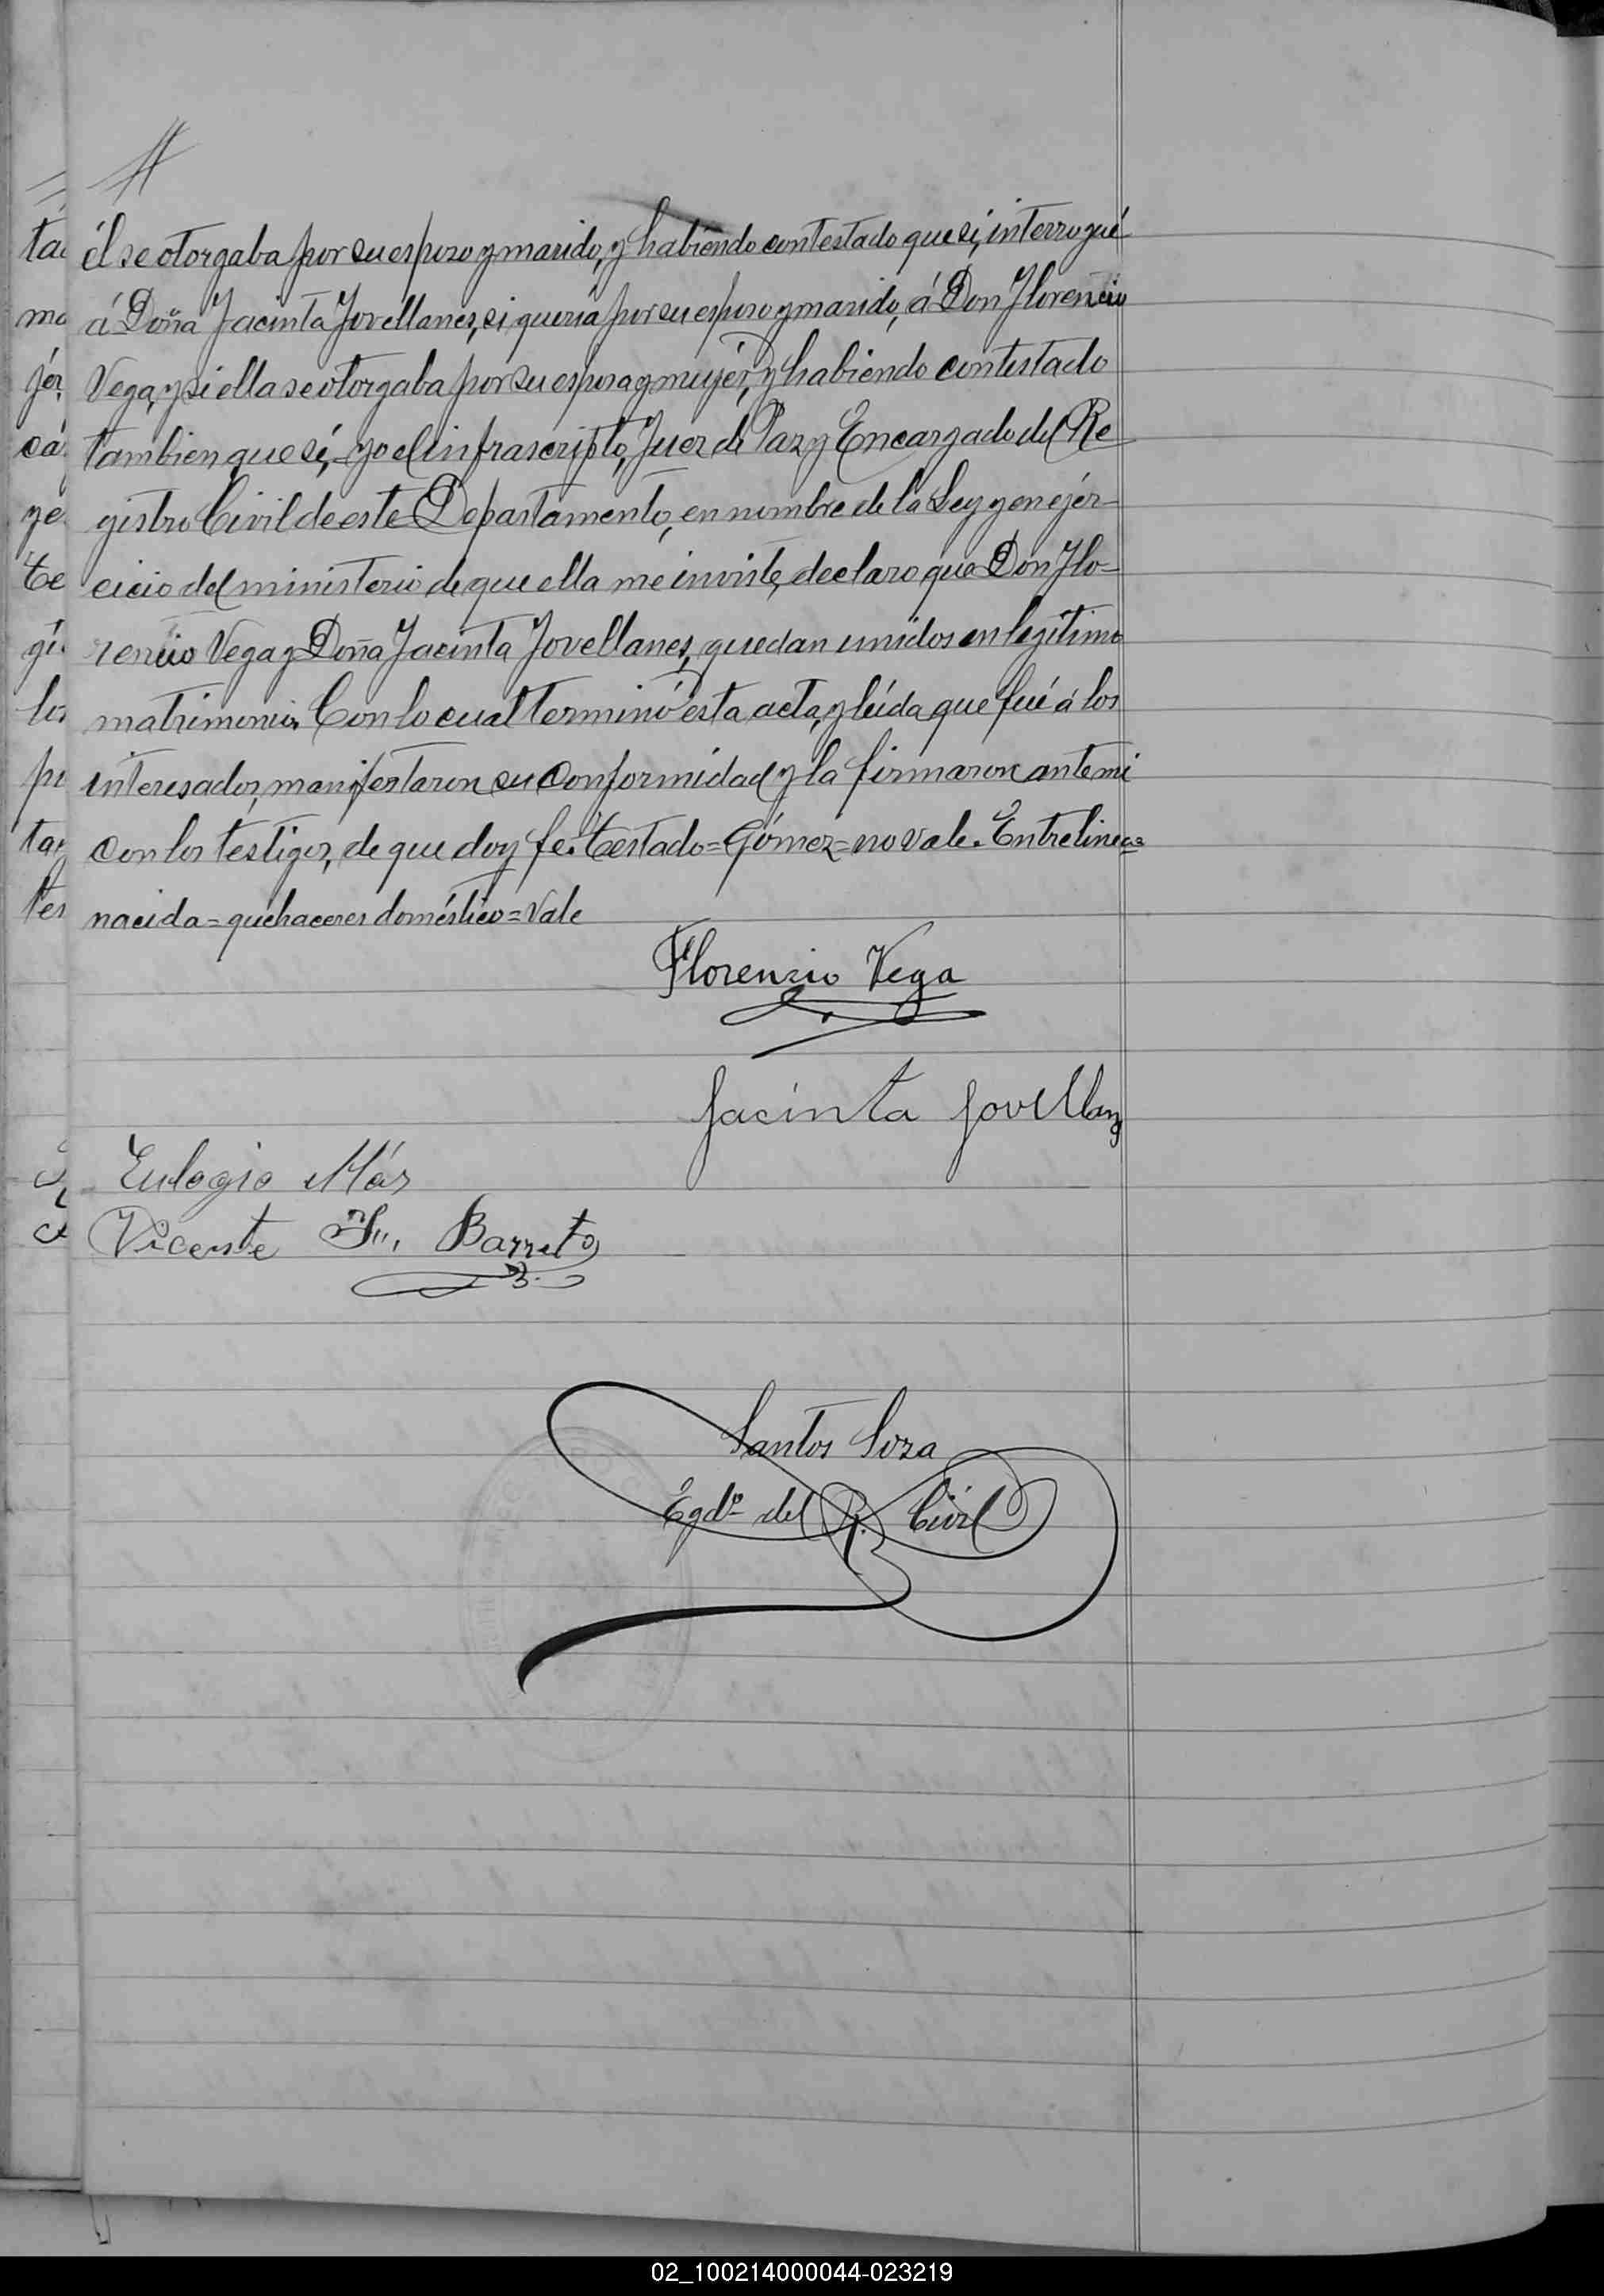 él se otorgaba por su esposo y marido, y habiendo contestado que si, interrogué
á Doña Jacinta Jovellanes, si quería por su esposo y marido, á Don Florencio
Vega, y si ella se otorgaba por su esposa y mujér, y habiendo contestado
tambien que sí, yo el infrascripto, Juez de Paz y Encargado del Re
gistro Civil de este Departamento, en nombre de la Ley y en ejér-
cicio del ministerio de que ella me inviste, declaro que Don Flo-
rencio Vega y Doña Jacinta Jovellanes, quedan unidos en legítimo
matrimonio. Con lo cual terminó esta acta, y leída que fué á los
interesados, manifestaron su conformidad y la firmaron ante mi
con los testigos, de que doy fe. Testado=Gómez=no vale. Entrelineas
nacida=quehaceres doméstico=Vale
Florenzio Vega
Jacinta Jovellanz
Eulogio Más
Vicente F. Barreto
Santos Soza
Egdo del R. Civil
02_100214000044-023219